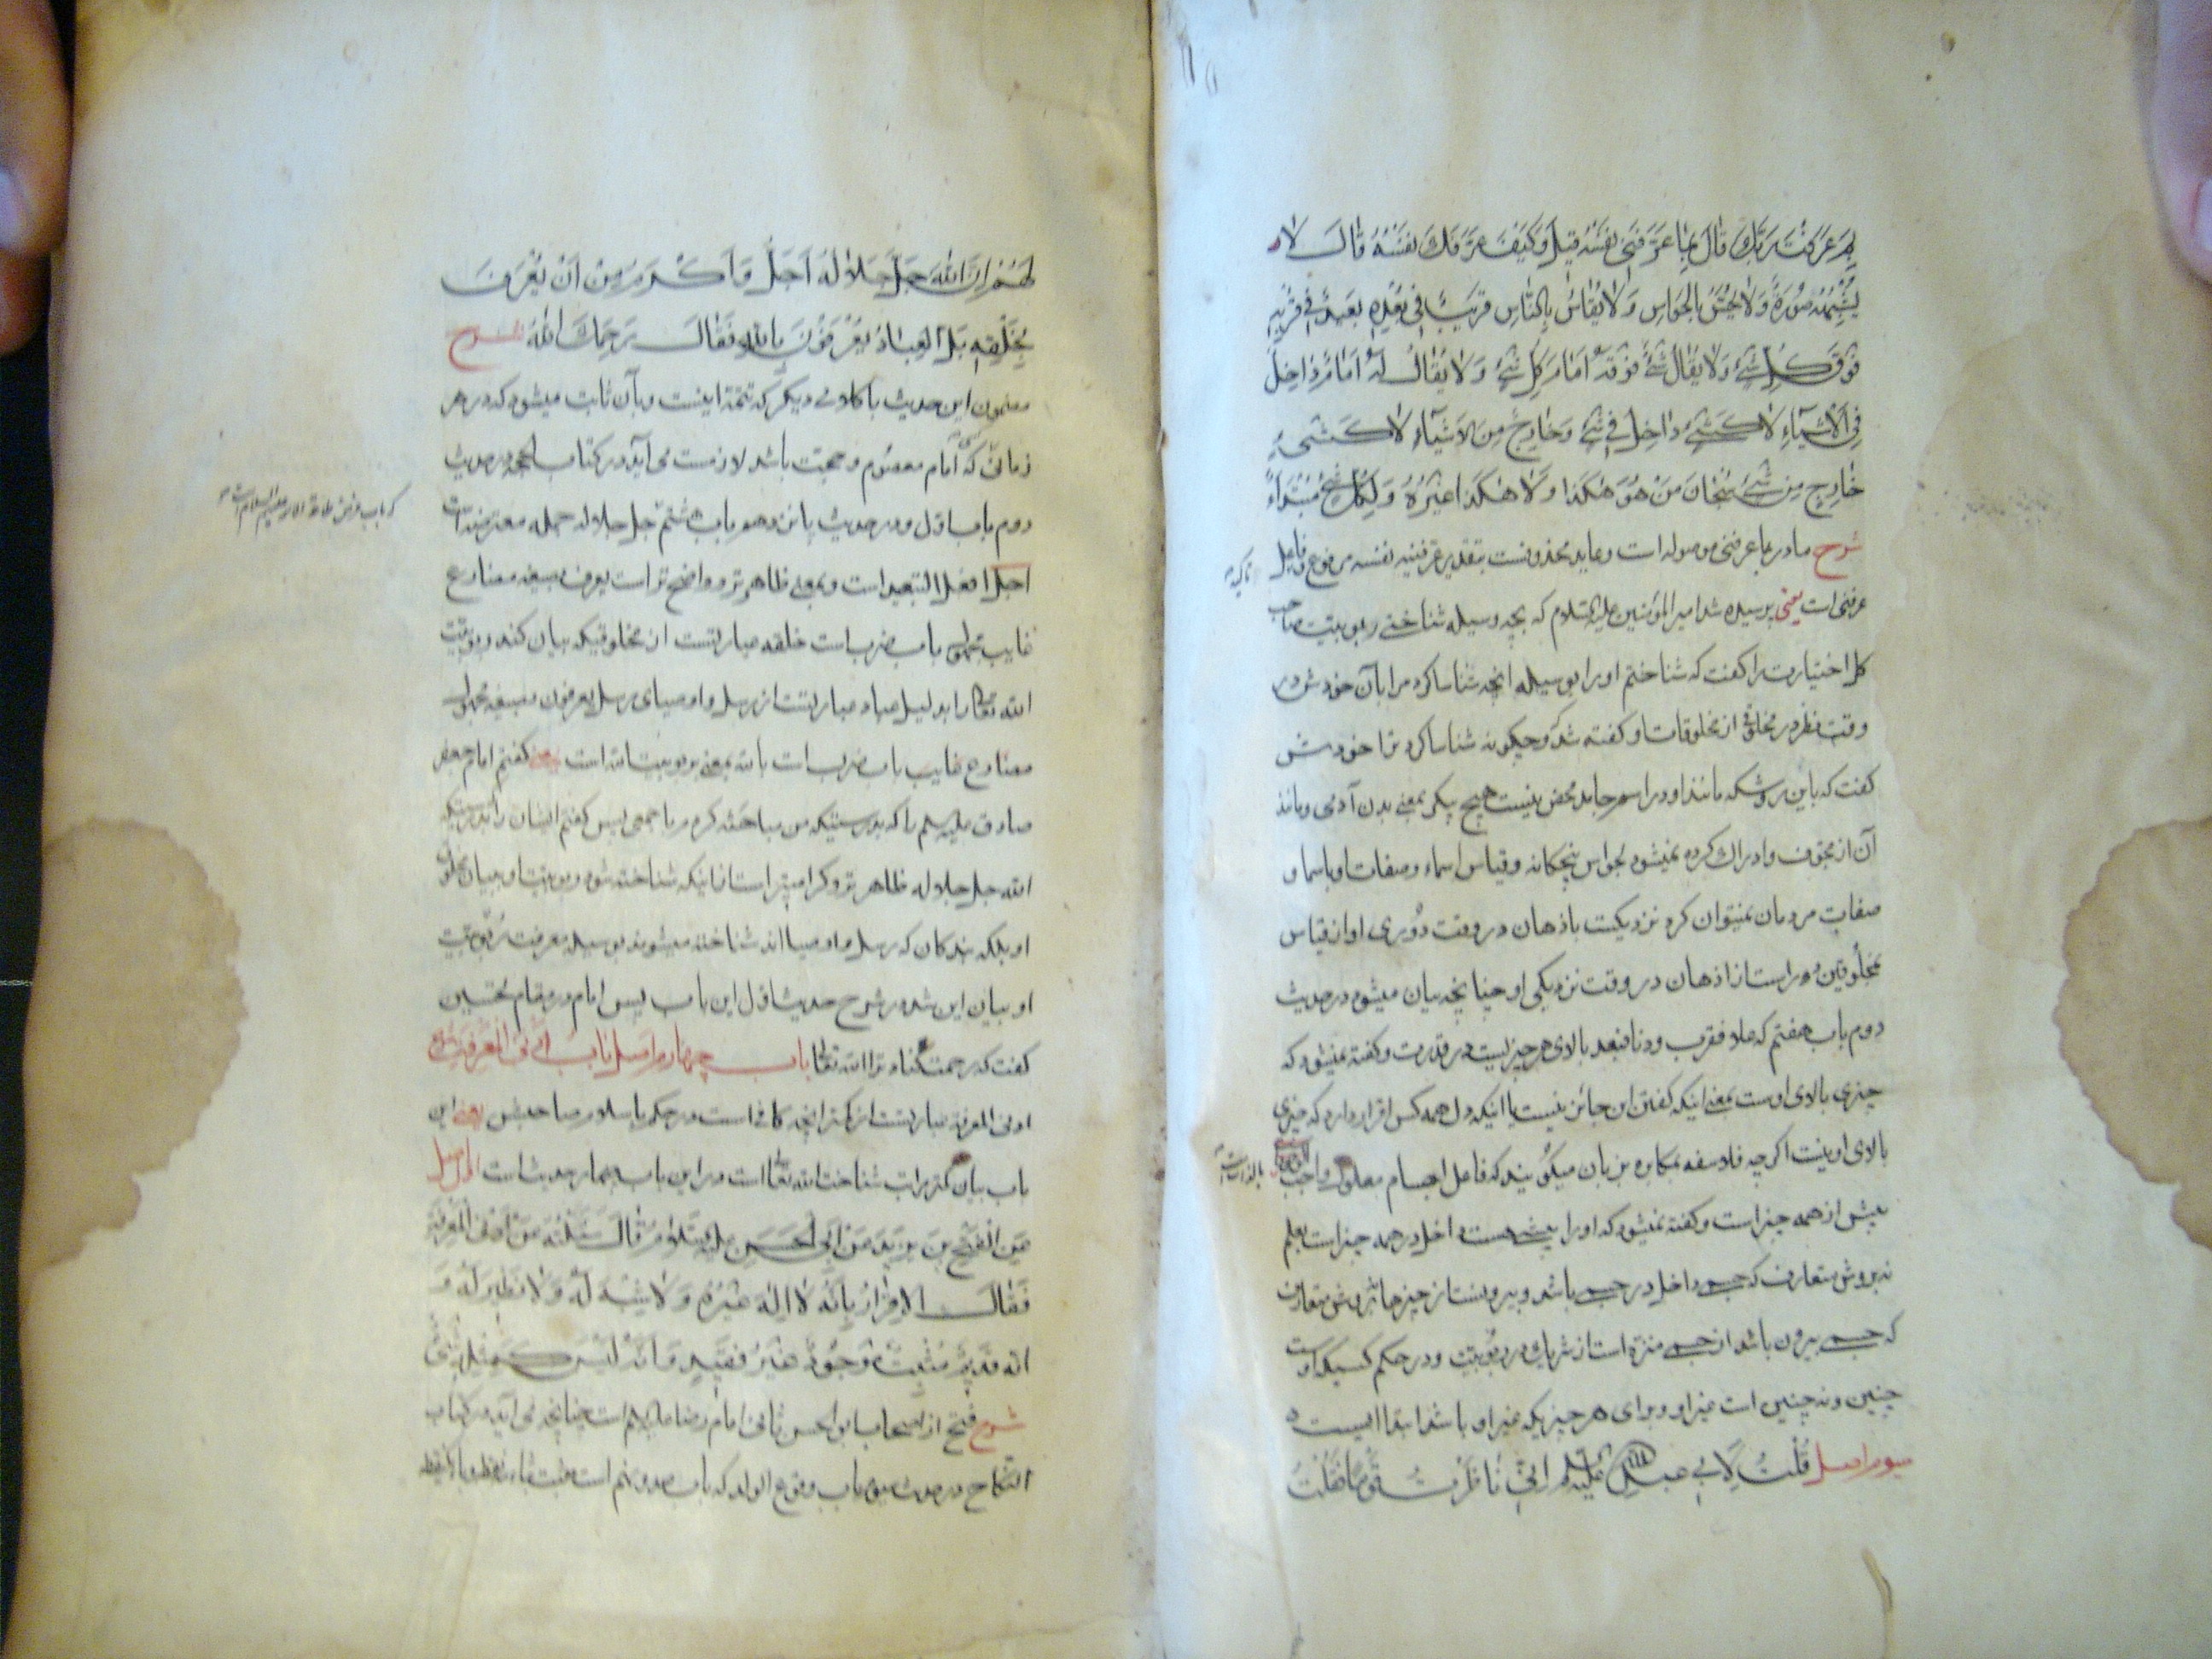 بِمَ عَرَفْتَ رَبَّكَ قَالَ بِمَا عَرَّفَنِى نَفْسَهُ قِيلَ وَكَيْفَ عَرَّفَكَ نَفْسَهُ قَالَ لَا
يُشْبِهُهُ صُورَةٌ وَلَا يُحَسُّ بِالْحَوَاسِّ وَلَا يُقَاسُ بِالنَّاسِ قَرِيبٌ فِى بُعْدِهِ بَعِيدٌ فِى قُرْبِهِ
فَوْقَ كُلِّ شَىْءٍ وَلَا يُقَالُ شَىْءٌ فَوْقَهُ اَمَامَ كُلِّ شَىْءٍ وَلَا يُقَالُ لَهُ اَمَامٌ دَاخِلٌ
فِى الْاَشْيَاءِ لَا كَشَىْءٍ دَاخِلٍ فِى شَىْءٍ وَخَارِجٌ مِنَ الْاَشْيَاءِ لَا كَشَىْءٍ
خَارِجٍ مِنْ شَىْءٍ سُبْحَانَ مَنْ هُوَ هٰكَذَا وَلَا هٰكَذَا غَيْرُهُ وَلِكُلِّ شَىْءٍ مُبْتَدَاءٌ
شرح ما در بما عرفنى موصوله است وعايد محذوفست بتقدير عرفنيه نفسه مرفوع وفاعل
عرفنى است يعنى پرسيده شد امير المؤمنين عليه السلام كه بچه وسيله شناختى ربوبيت صاحب
كل اختيارت را كفت كه شناختم او را بوسيله آنچه شناسا كرد مرا بآن خودش در
وقت نظر در مخلوقى از مخلوقات او كفته شد كه وچكونه شناسا كرد ترا خودش
كفت كه باين روشكه مانند او در اسم جامد محض نيست هيچ پيكر بمعنى بدن آدمى ومانند
آن از مجوف وادراك كرده نميشود بحواس پنجكانه وقياس اسماء وصفات او باسما و
صفات مردمان نميتوان كرد نزديكست باذهان در وقت دورى او از قياس
بمخلوقين دور است از اذهان در وقت نزديكى او چنانچه بيان ميشود در حديث
دوم باب هفتم كه علا فقرب ودنا فبعد بالاى هر چيزيست در قدرت وكفته نميشود كه
چيزى بالاى اوست بمعنى اينكه كفتن اين جائز نيست با اينكه دل همه كس اقرار دارد كه چيزى
بالاى او نيست اكر چه فلاسفه بمكابره بزبان ميكويند كه فاعل اجسام معلول واجب
بالذات است
پيش از همه چيز است وكفته نميشود كه او را پيشى هست داخل در همه چيز است بعلم
نه بروش متعارف كه جسمى داخل در جسمى باشد وبيرونست از چيزها نه بروش متعارف
كه جسمى بيرون باشد از جسمى منزه است از شريك در ربوبيت ودر حكم كسيكه او
چنين ونه چنين است غير او وبراى هر چيزيكه غير او باشد ابتداايست
سوم اصل قُلْتُ لِاَبِى عَبْدِ اللّٰهِ عَلَيْهِ السَّلَمُ اِنِّى نَاظَرْتُ قَوْمًا فَقُلْتُ
لَهُمْ اِنَّ اللّٰهَ جَلَّ جَلَالُهُ اَجَلُّ وَاَكْرَمُ مِنْ اَنْ يُعْرَفَ
بِخَلْقِهِ بَلِ الْعِبَادُ يُعْرَفُونَ بِاللّٰهِ فَقَالَ رَحِمَكَ اللّٰهُ شرح
مضمون اين حديث با كلامى ديكر كه تتمه اينست وبآن ثابت ميشود كه در هر
زمانى كه امام معصوم وحجت باشد لازمست مى آيد در كتاب الحجه در حديث
دوم باب اول ودر حديث پانزدهم باب هشتم جل جلاله جمله معترضه است
كه باب فرض طاعة الائمه عليهم السلام است
اجل افعل التفضيل است وبمعنى ظاهرتر وواضح تر است يعرف بصيغه مضارع
غايب مجهول باب ضرب است خلقه عبارتست از مخلوقيكه بيان كند ربوبيت
الله تعالى را بدليل عباد عبارتست از رسل واوصياى رسل يعرفون بصيغه مجهول
مضارع غايب باب ضرب است بالله بمعنى بربوبيت الله است يعنى كفتم امام جعفر
صادق عليه السلم را كه بدرستيكه من مباحثه كردم با جمعى پس كفتم ايشان را بدرستيكه
الله جل جلاله ظاهرتر وكرامىتر است از اينكه شناخته شود ربوبيت او ببيان مخلوق
او بلكه بندكان كه رسل واوصيااند شناخته ميشوند بوسيله معرفت ربوبيت
او بيان اين شد در شرح حديث اول اين باب پس امام در مقام تحسين
كفت كه رحمت كناد ترا الله تعالى باب چهارم اصل بَابُ اَدْنَى الْمَعْرِفَةِ شرح
ادنى المعرفه عبارتست از كمتر آنچه كافى است در حكم باسلام صاحبش يعنى اين
باب بيان كمتر مراتب شناخت الله تعالى است در اين باب چهار حديث است اول اصل
عَنِ الْفَتْحِ بْنِ يَزِيدَ عَنْ اَبِى الْحَسَنِ عَلَيْهِ السَّلَامُ قَالَ سَئَلْتُهُ عَنْ اَدْنَى الْمَعْرِفَةِ
فَقَالَ الْاِقْرَارُ بِاَنَّهُ لَا اِلٰهَ غَيْرُهُ وَلَا شِبْهَ لَهُ وَلَا نَظِيرَ لَهُ وَ
اَنَّهُ قَدِيمٌ مُثْبَتٌ مَوْجُودٌ غَيْرُ فَقِيدٍ وَاَنَّهُ لَيْسَ كَمِثْلِهِ شَىْءٌ
شرح فتح از اصحاب ابو الحسن ثانى امام رضا عليه السلم است چنانچه مى آيد در كتاب
النكاح در حديث باب وقوع الولد كه باب صد ونهم است مثبت